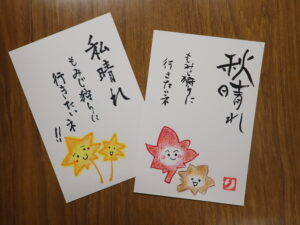 私晴れ
もみじ狩りに
行きたいネ
!!
秋晴れ
もみじ狩りに
行きたいネ